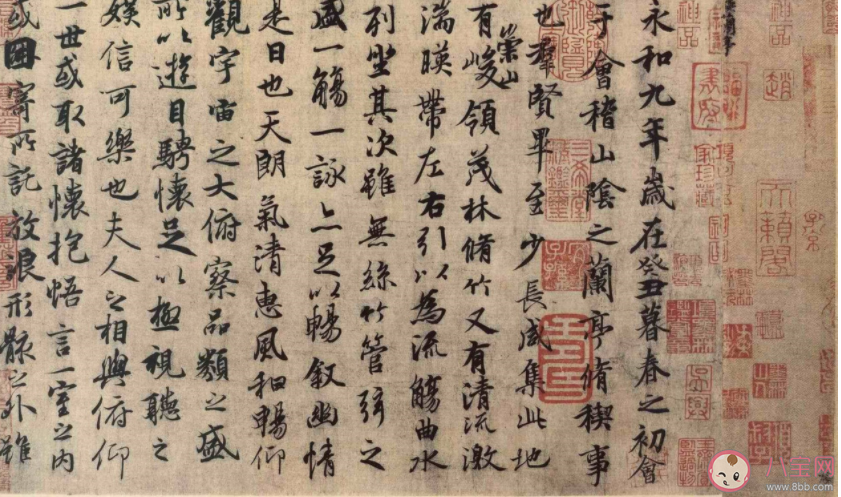 永和九年歲在癸丑暮春之初會
于會稽山陰之蘭亭脩稧事
也羣賢畢至少長咸集此地
有崇山峻領茂林脩竹又有清流激
湍暎帶左右引以為流觴曲水
列坐其次雖無絲竹管弦之
盛一觴一詠亦足以暢叙幽情
是日也天朗氣清惠風和暢仰
觀宇宙之大俯察品類之盛
所以遊目騁懷足以極視聽之
娛信可樂也夫人之相與俯仰
一世或取諸懷抱悟言一室之內
或因寄所託放浪形骸之外雖
天籟閣
八宝网
www.8bb.com